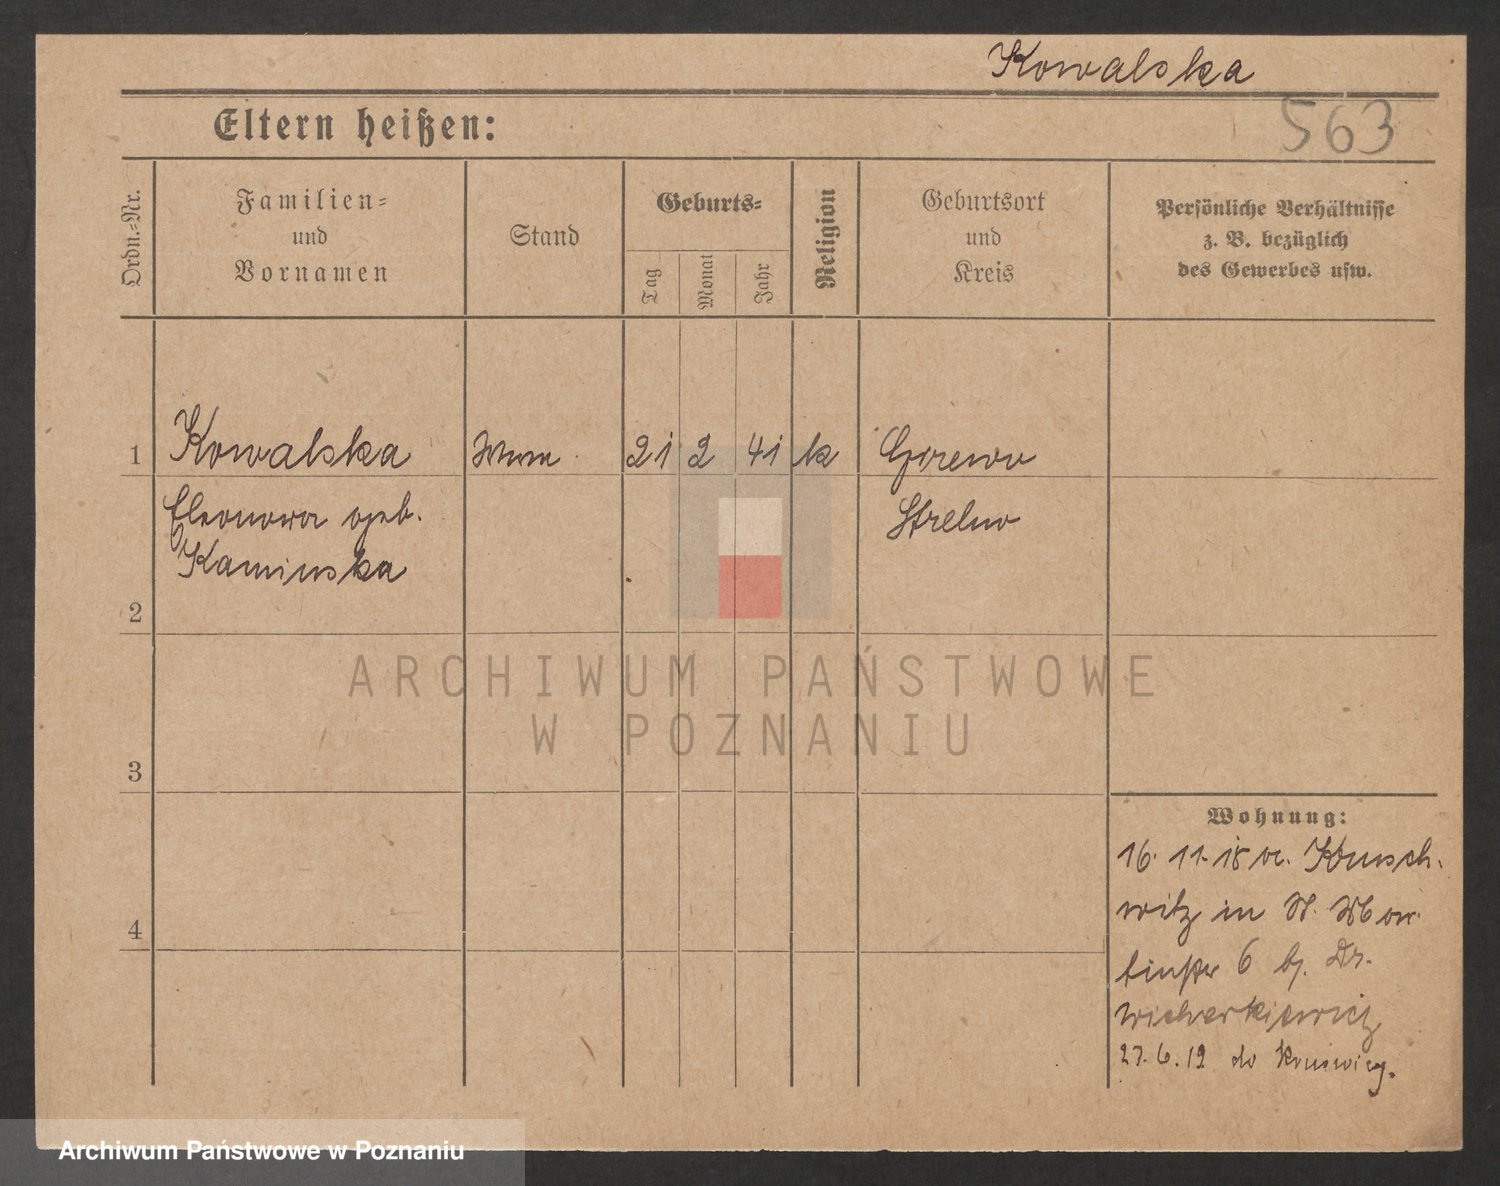 Kowalska
563
Eltern heißen:
Ordn.-Nr.
Familien-
und
Vornamen
Stand
Geburts-
Tag
Monat
Jahr
Religion
Geburtsort
und
Kreis
Persönliche Verhältnisse
z. B. bezüglich
des Gewerbes usw.
1 Kowalska 21 2 41 k
Eleonora geb. Strelno
Kaminska
2
3
4
Wohnung:
16. 11. 18 v. Krusch-
witz in St. Mar
tinstr 6 b. Dr.
Wicherkiewicz
27. 6. 19 do
ARCHIWUM PAŃSTWOWE
W POZNANIU
Archiwum Państwowe w Poznaniu